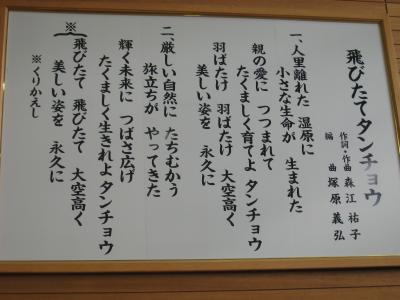 飛びたてタンチョウ
作詞・作曲 森江祐子
編曲 塚原義弘
一、人里離れた 湿原に
小さな生命が 生まれた
親の愛に つつまれて
たくましく育てよ タンチョウ
羽ばたけ 羽ばたけ 大空高く
美しい姿を 永久に
二、厳しい自然に たちむかう
旅立ちが やってきた
輝く未来に つばさ広げ
たくましく生きれよ タンチョウ
※飛びたて 飛びたて 大空高く
美しい姿を 永久に
※くりかえし